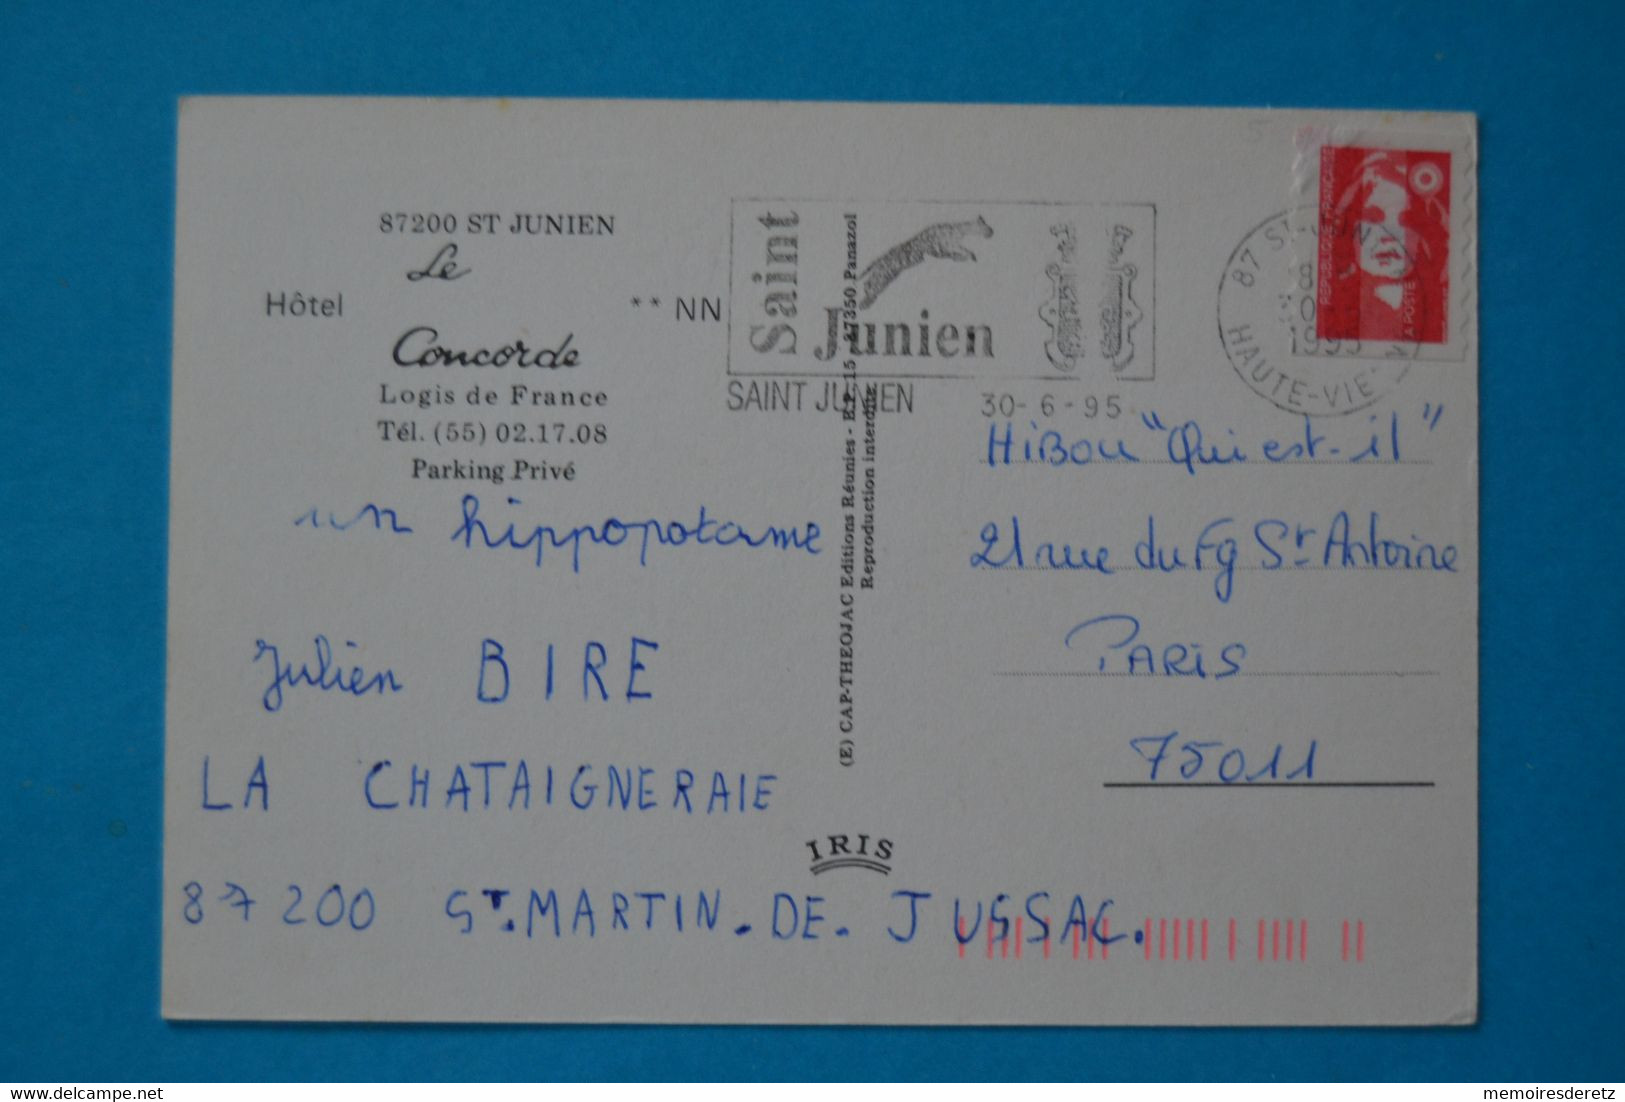 87200 ST JUNIEN
Le
Hôtel ** NN
Concorde
Logis de France
Tél. (55) 02.17.08
Parking Privé
un hippopotame
Julien BIRE
LA CHATAIGNERAIE
87200 ST. MARTIN. DE. JUSSAC.
(E) CAP-THEOJAC Editions Réunies - B.P. 15 - 87350 Panazol
Reproduction interdite
IRIS
Saint
Junien
SAINT JUNIEN 30-6-95
87 ST-JUNIEN
1995
HAUTE-VIENNE
REPUBLIQUE FRANÇAISE
LA POSTE
HiBOU "Qui est-il"
21 rue du Fg St Antoine
PARIS
75011
memoiresderetz